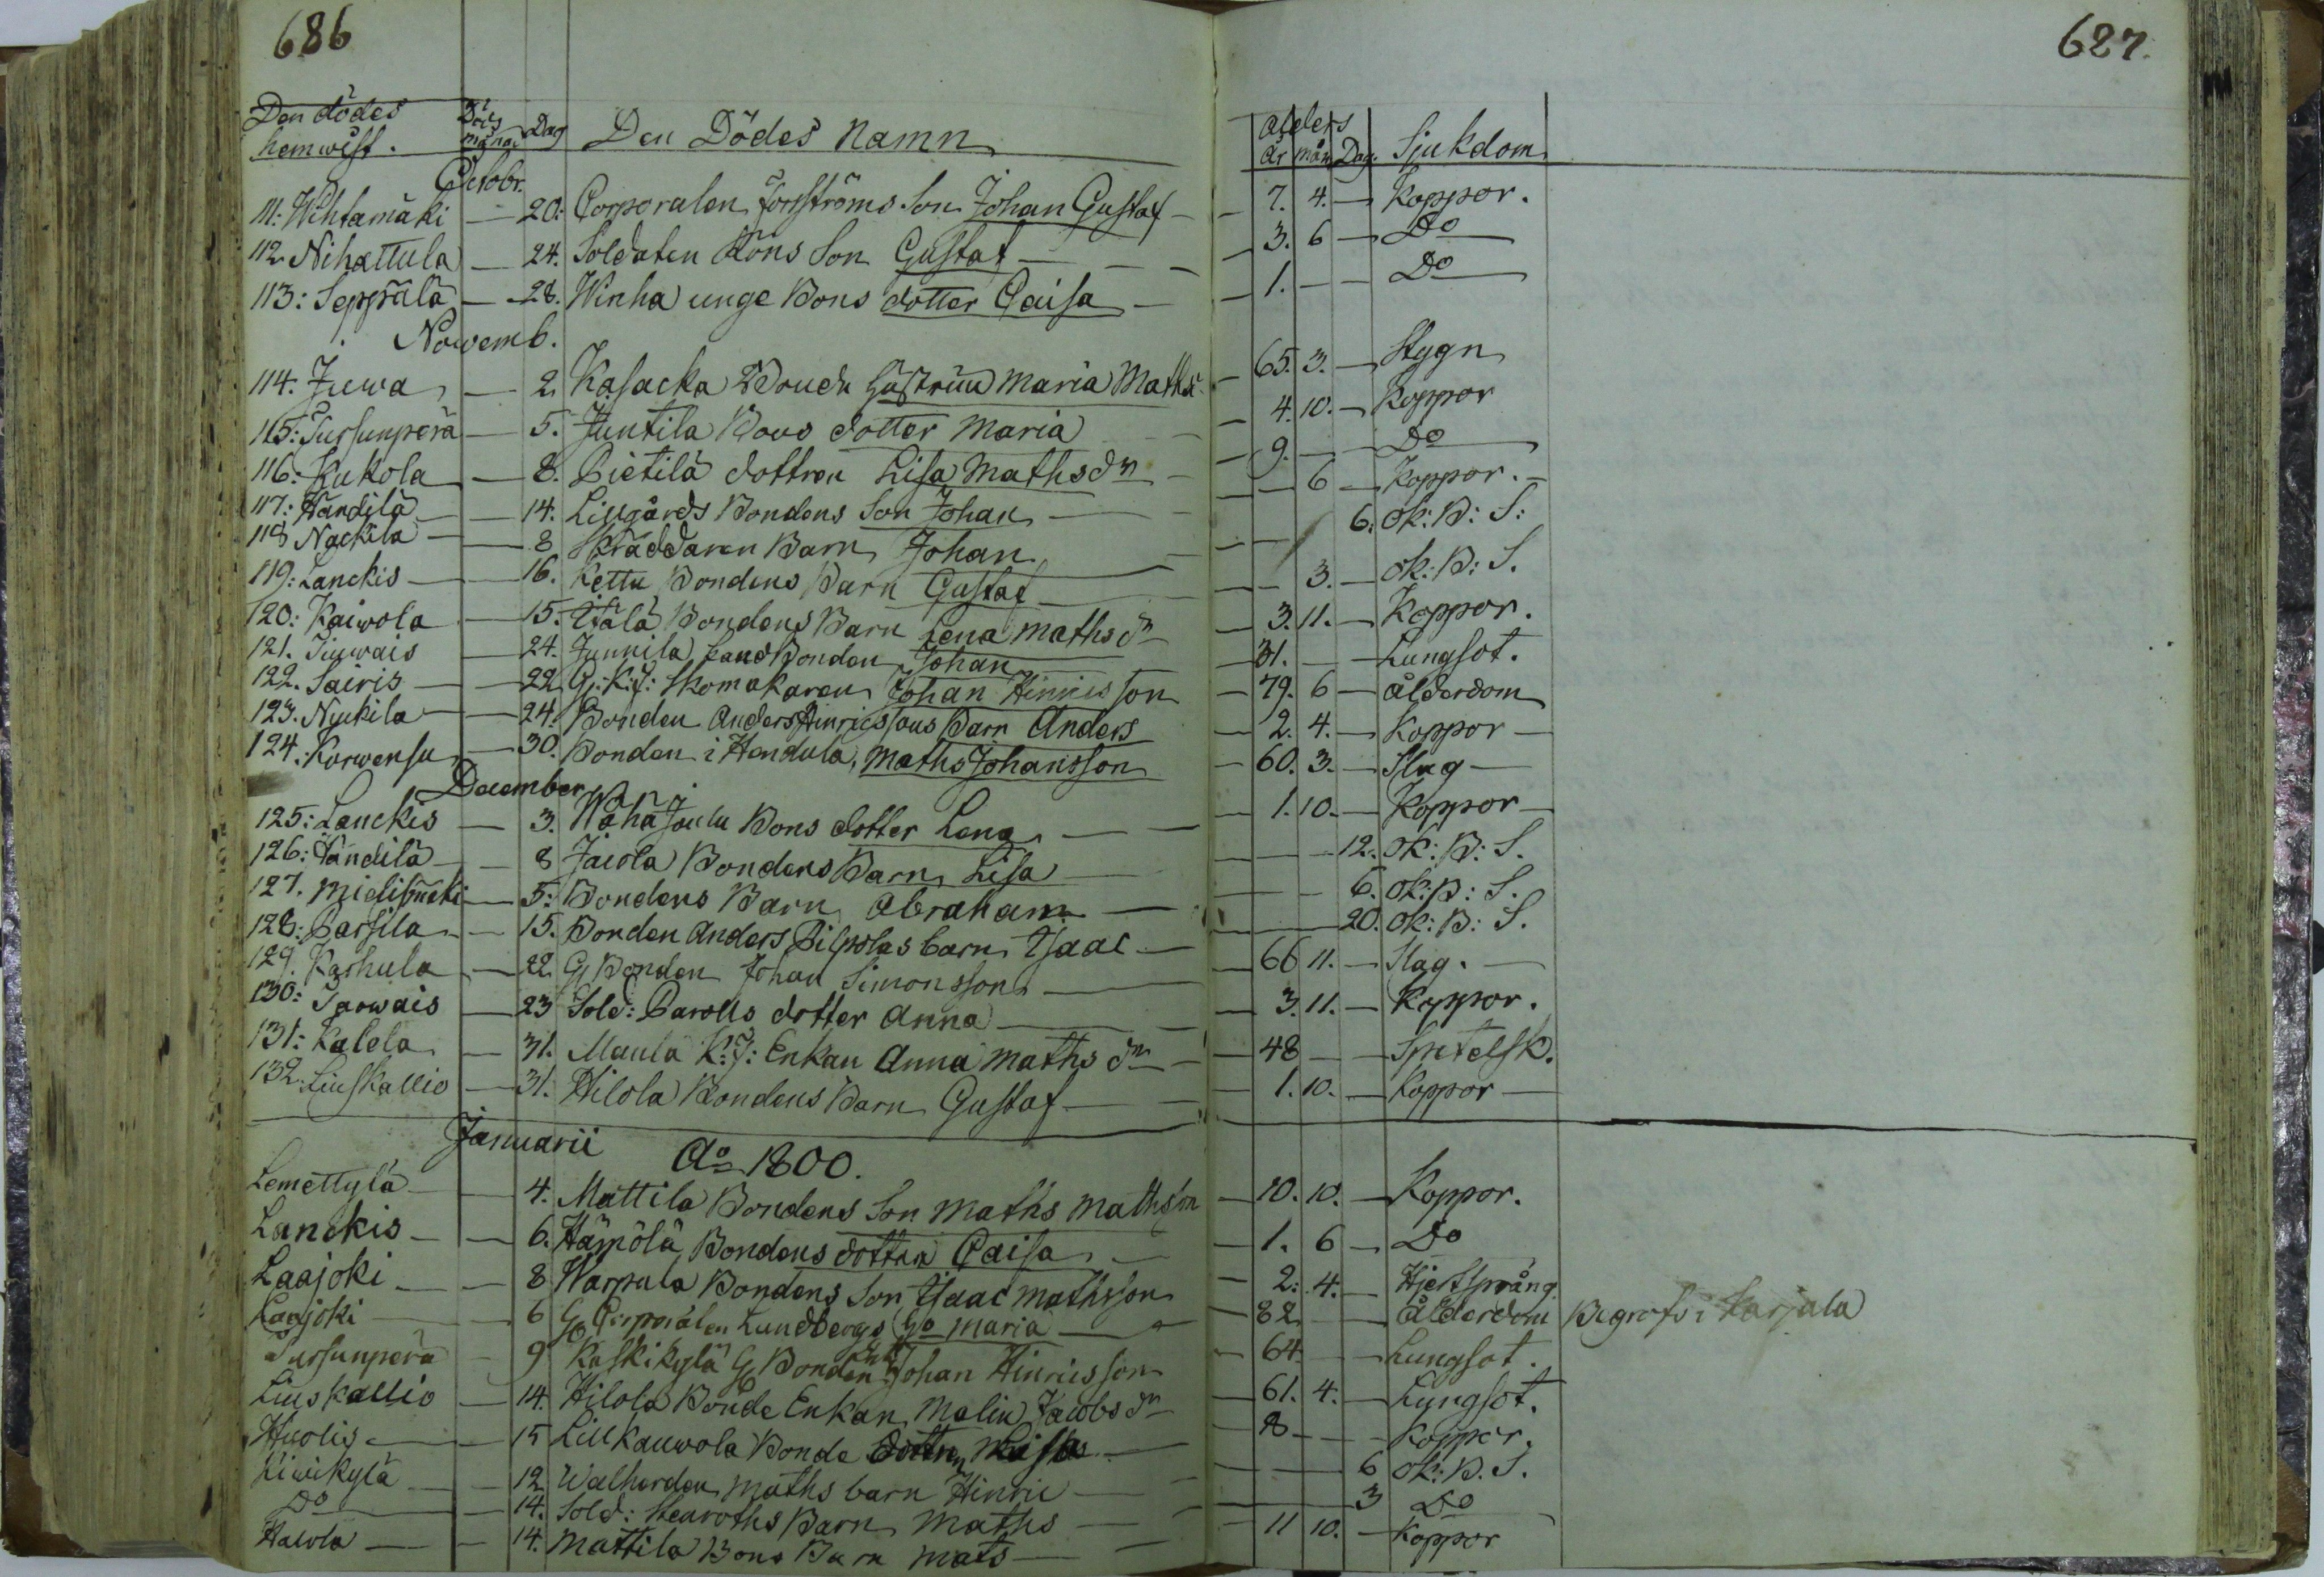 686
687.
Den dödes hemwist. Döds månad Dag Den Dödes Namn Ålders År Mån Dag. Sjukdom
Octobr.
111: Wihtamäki — 20: Corporalen Forsströms Son Johan Gustaf — 7. 4. — Koppor.
112 Nihattula — 24. SoldatenKöns Son Gustaf — 3. 6 — Do
113: Seppälä — 28. Winha unge Bons dotter Caisa — 1. — — Do
Novemb.
114. Juwa — 2 Kasacka Bonde Hustrun Maria Maths — 65. 3. — Stygn
115: Tursunperä — 5. Juntila Bons dotter Maria — 4. 10. — Koppor
116: Kukola — 8. Pietilä dottren Lisa Mathsdn — 9. — Do
117: Händilä — 14. Lillgårds Bondens Son Johan — — 6 — Koppor. —
118 Nackila — 8 Skräddaren Barn Johan — — 6. Ok: B: S:
119: Lanckis — 16. Kettu Bondens Barn Gustaf — — 3. — Ok: B: S.
120: Kaiwola — 15. Ylälä Bondens Barn Lena Mathsdn — 3. 11. — Koppor.
121. Inwais — 24. Junnila Landbonden Johan — 31. — — Lungsot.
122. Sairis — 22 G: K: J: Skomakaren Johan Hinricsson — 79. 6 — Ålderdom
123. Nyckila — 24. Bonden Anders Hinricssons Barn Anders — 2. 4. — Koppor —
124. Korwensu — 30. Bonden i Hendula, Maths Johansson — 60. 3. — Slag —
December
125: Lanckis — 3. Wähäjoulu Bons dotter Lena — — 1. 10. — Koppor —
126: Händilä — 8 Jaiola Bondens Barn Lisa — — — — 12. Ok: B: S.
127. Mielismäki — 5: Bondens Barn Abraham — — — 6. Ok: B: S.
128: Parsila — 15. Bonden Anders Pilpolas barn Isaac — — 20. Ok: B: S.
129. Karhula — 22 G Bonden Johan Simonsson — — 66 11. — Slag. —
130: Sarwais — 23 Sold: Parolls dotter Anna — — 3. 11. — Koppor.
131: Kalela — 31. Maula K: J: Enkan Anna Maths dn — — 48 — — Spetelsk.
132. Liuskallio — 31. Hilola Bondens Barn Gustaf — — 1. 10. — Koppor —
Januarii Ao 1800.
Lemettylä — 4. Mattila Bondens Son Maths Mathsson — 10. 10. — Koppor.
Lanckis — — 6. Hämölä Bondens dotter Caisa — — 1. 6 — Do
Laajoki — — 8 Warpula Bondens Son Isaac Mathsson — 2: 4. — Hjertsprång
Laajoki — 6 G Corporalen Lundbergs Ga Maria — 82 — — Ålderdom Begrofs i Karjala
Tursunperä — 9 Kaskikylä G Bonden Johan Hinricsson — 64. — — Lungsot.
Liuskallio — 14. Hilola Bonde Enkan Malin Jacobs dn — 61. 4. — Lungsot.
Huolis — 15 Lill Kauwola Bonde Dottren Lisa — 8 — — Koppor.
Kiwikylä — 12 Walherden Maths barn Hinric — — — 6 Ok: B. S.
Do — 14. Sold: Stenroths Barn Maths — — — 3 Do
Kalela — — 14. Mattila Bons Barn Mats — 11 10. — Koppor